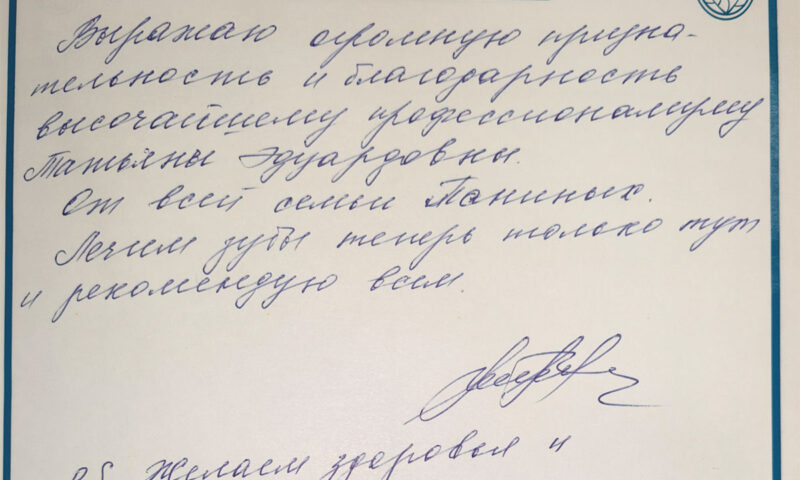 Выражаю огромную призна-
тельность и благодарность
высочайшему профессионализму
Татьяны Эдуардовны.
От всей семьи Паниных.
Лечим зубы теперь только тут
и рекомендую всем.
Желаем здоровья и